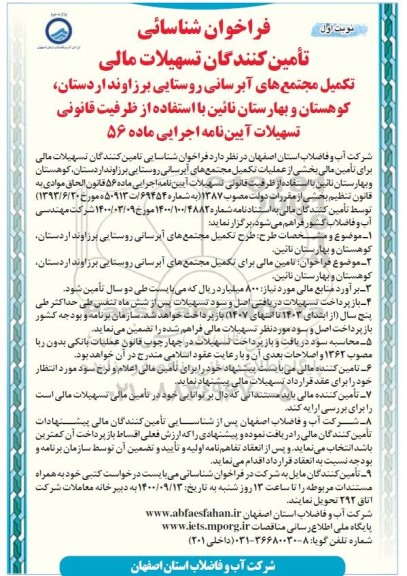 نوبت اول
فراخوان شناسائی
تأمین کنندگان تسهیلات مالی
تکمیل مجتمع‌های آبرسانی روستایی برزاوند اردستان،
کوهستان و بهارستان نائین با استفاده از ظرفیت قانونی
تسهیلات آیین‌نامه اجرایی ماده ۵۶
شرکت آب و فاضلاب استان اصفهان در نظر دارد فراخوان شناسایی تامین کنندگان تسهیلات مالی
برای تأمین مالی بخشی از عملیات تکمیل مجتمع‌های آبرسانی روستایی برزاوند اردستان، کوهستان
و بهارستان نائین با استفاده از ظرفیت قانونی تسهیلات آیین‌نامه اجرایی ماده ۵۶ قانون الحاق موادی به
قانون تنظیم بخشی از مقررات دولت مصوب ۱۳۸۷ (به شماره ۶۹۴۵۴/ت۵۰۹۱۳ه مورخ ۱۳۹۳/۶/۲۰)
توسط تأمین کنندگان مالی به استناد نامه شماره ۱۴۰۰/۱۰۰/۴۸۸۲ مورخ ۱۴۰۰/۰۳/۰۹ شرکت مهندسی
آب و فاضلاب کشور فراهم می‌شود، برگزار نماید:
۱-موضوع و مشخصات طرح: طرح تکمیل مجتمع‌های آبرسانی روستایی برزاوند اردستان،
کوهستان و بهارستان نائین.
۲-موضوع فراخوان: تامین مالی برای تکمیل مجتمع‌های آبرسانی روستایی برزاوند اردستان،
کوهستان و بهارستان نائین.
۳-برآورد منابع مالی مورد نیاز: ۸۰۰ میلیارد ریال که می‌بایست طی دو سال تأمین شود.
۴-بازپرداخت تسهیلات دریافتی اصل و سود تسهیلات پس از شش ماه تنفس طی حداکثر طی
پنج سال (از ابتدای ۱۴۰۳ تا انتهای ۱۴۰۷) بازپرداخت خواهد شد. سازمان برنامه و بودجه کشور
بازپرداخت اصل و سود مورد نظر تسهیلات مالی فراهم شده را تضمین می‌نماید.
۵-محاسبه سود دریافت و بازپرداخت تسهیلات در چهارچوب قانون عملیات بانکی بدون ربا
مصوب ۱۳۶۲ و اصلاحات بعدی آن و با رعایت عقود اسلامی مندرج در آن خواهد بود.
۶-تامین کننده مالی می‌بایست پیشنهاد خود را برای تأمین مالی اعلام و نرخ سود مورد انتظار
خود را برای عقد قرارداد تسهیلات مالی پیشنهاد نماید.
۷-تأمین کننده مالی باید مستنداتی که دال بر توانایی خود در تأمین مالی تسهیلات مالی است
را برای بررسی ارایه کند.
۸-شرکت آب و فاضلاب اصفهان پس از شناسایی تأمین کنندگان مالی پیشنهادات
تأمین کنندگان مالی را دریافت نموده و پیشنهادی را که ارزش فعلی اقساط بازپرداخت آن کمترین
باشد انتخاب می‌نماید. و پس از انعقاد تفاهم‌نامه اولیه و تأیید و تضمین آن توسط سازمان برنامه و
بودجه نسبت به انعقاد قرارداد اقدام می‌نماید.
۹-تأمین کنندگان مایل به شرکت در فراخوان شناسائی می‌بایست درخواست کتبی خود به همراه
مستندات مربوطه را تا ساعت ۱۳ روز شنبه به تاریخ: ۱۴۰۰/۰۹/۱۳ به دبیرخانه معاملات شرکت
اتاق ۲۹۲ تحویل نمایند.
شرکت آب و فاضلاب استان اصفهان www.abfaesfahan.ir
پایگاه ملی اطلاع رسانی مناقصات www.iets.mporg.ir
شماره تلفن گویا: ۸-۰۳۱-۳۶۶۸۰۰۳۰ (داخلی ۲۰۱)
شرکت آب و فاضلاب استان اصفهان